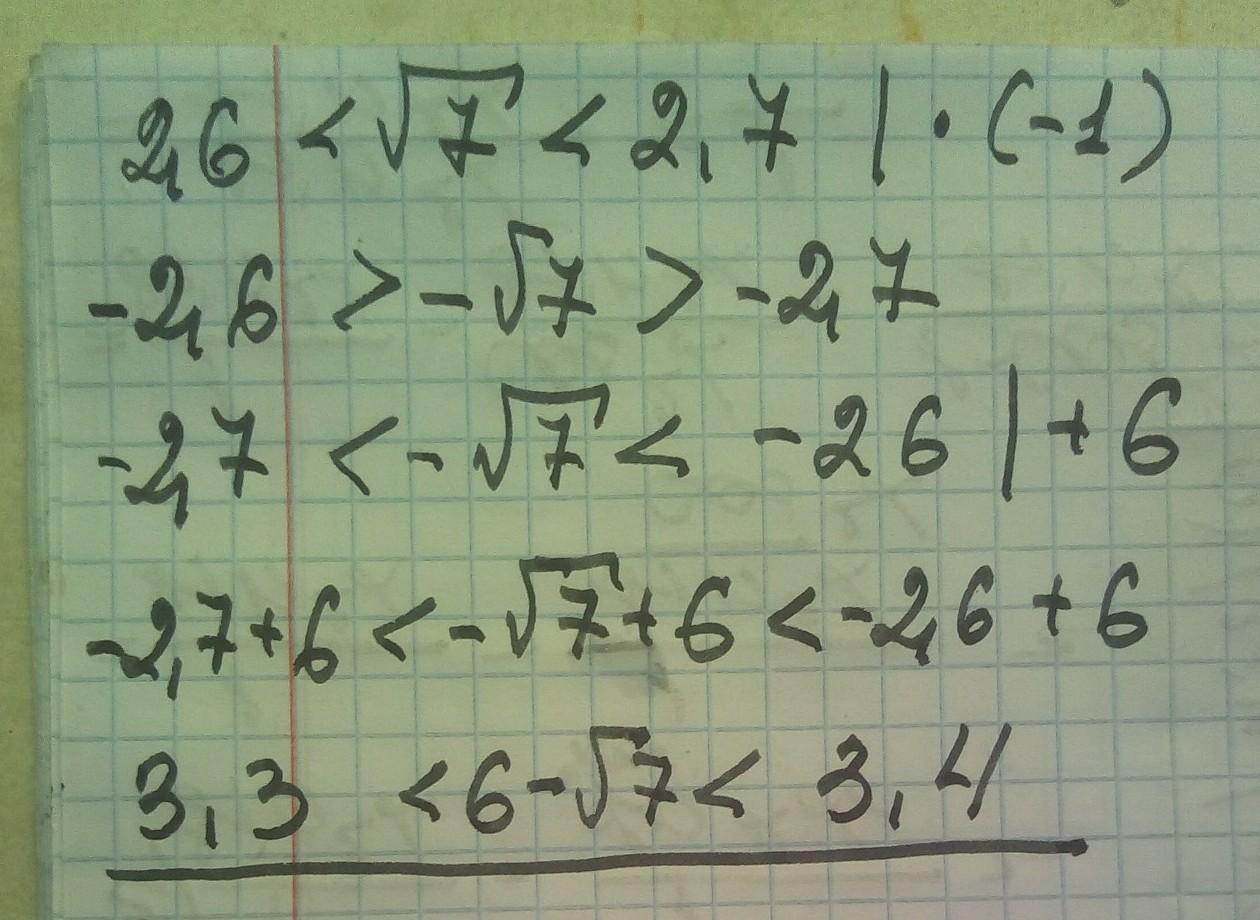 2,6 < √7 < 2,7 | · (-1)
-2,6 > -√7 > -2,7
-2,7 < -√7 < -26 | + 6
-2,7+6 < -√7+6 < -2,6 + 6
3,3 < 6-√7 < 3,4